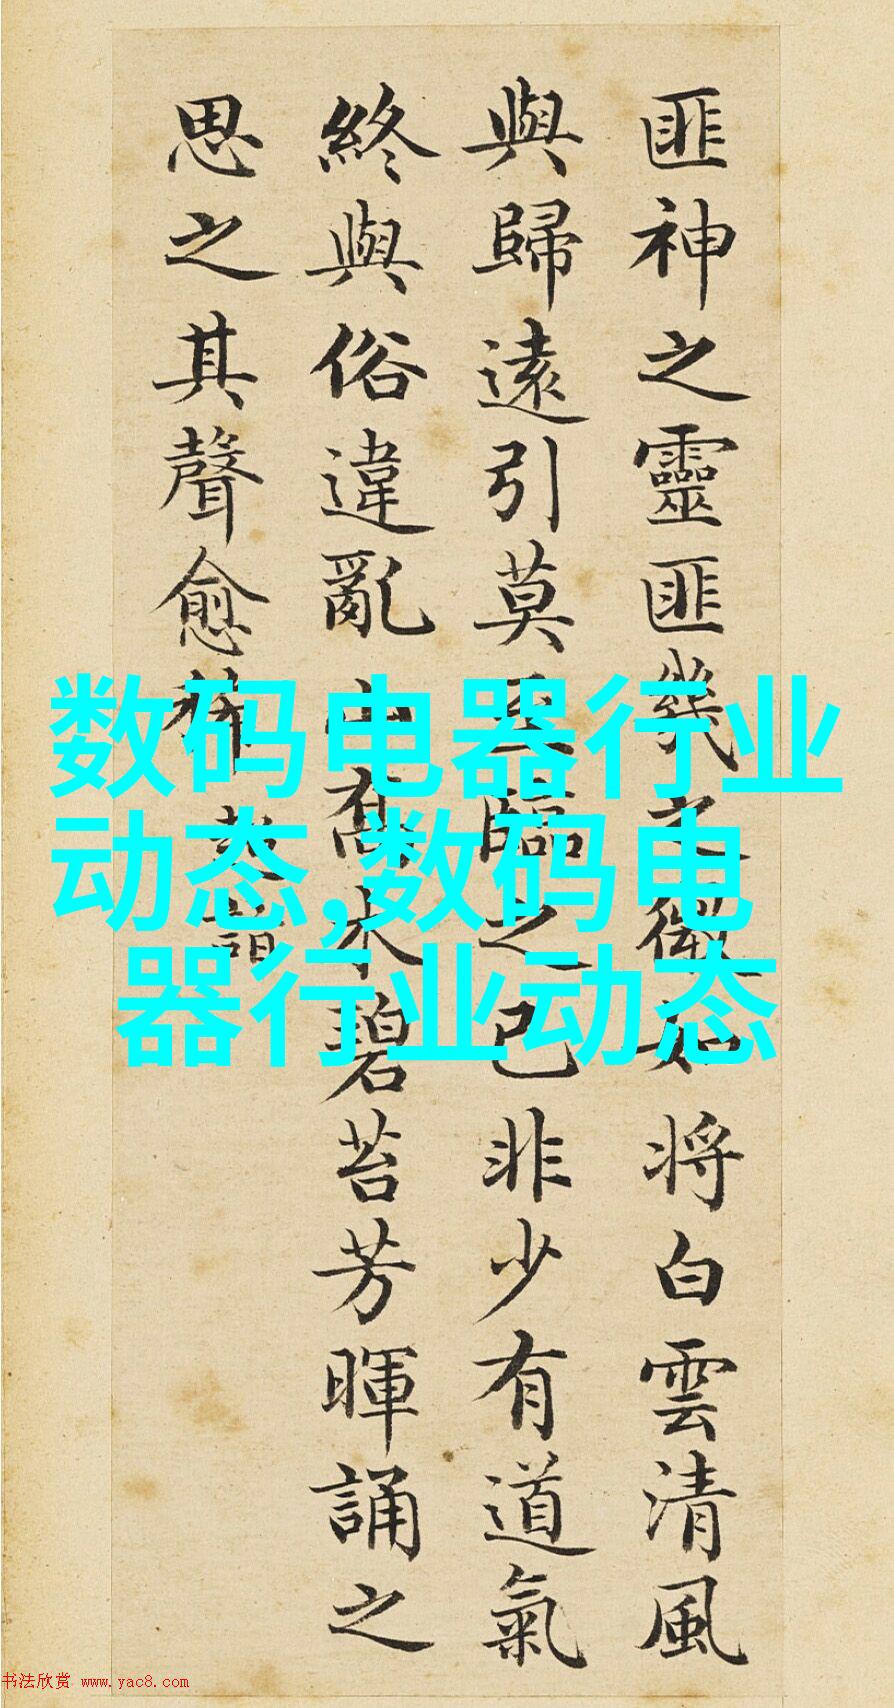 匪神之靈匪匪幾之微如將白雲清風
與歸遠引莫至臨之已非少有道氣
終與俗違亂山喬木碧苔芳暉誦之
思之其聲愈稀 超詣
数码电器行业
动态,数码电
器行业动态
书法欣赏 www.yac8.com